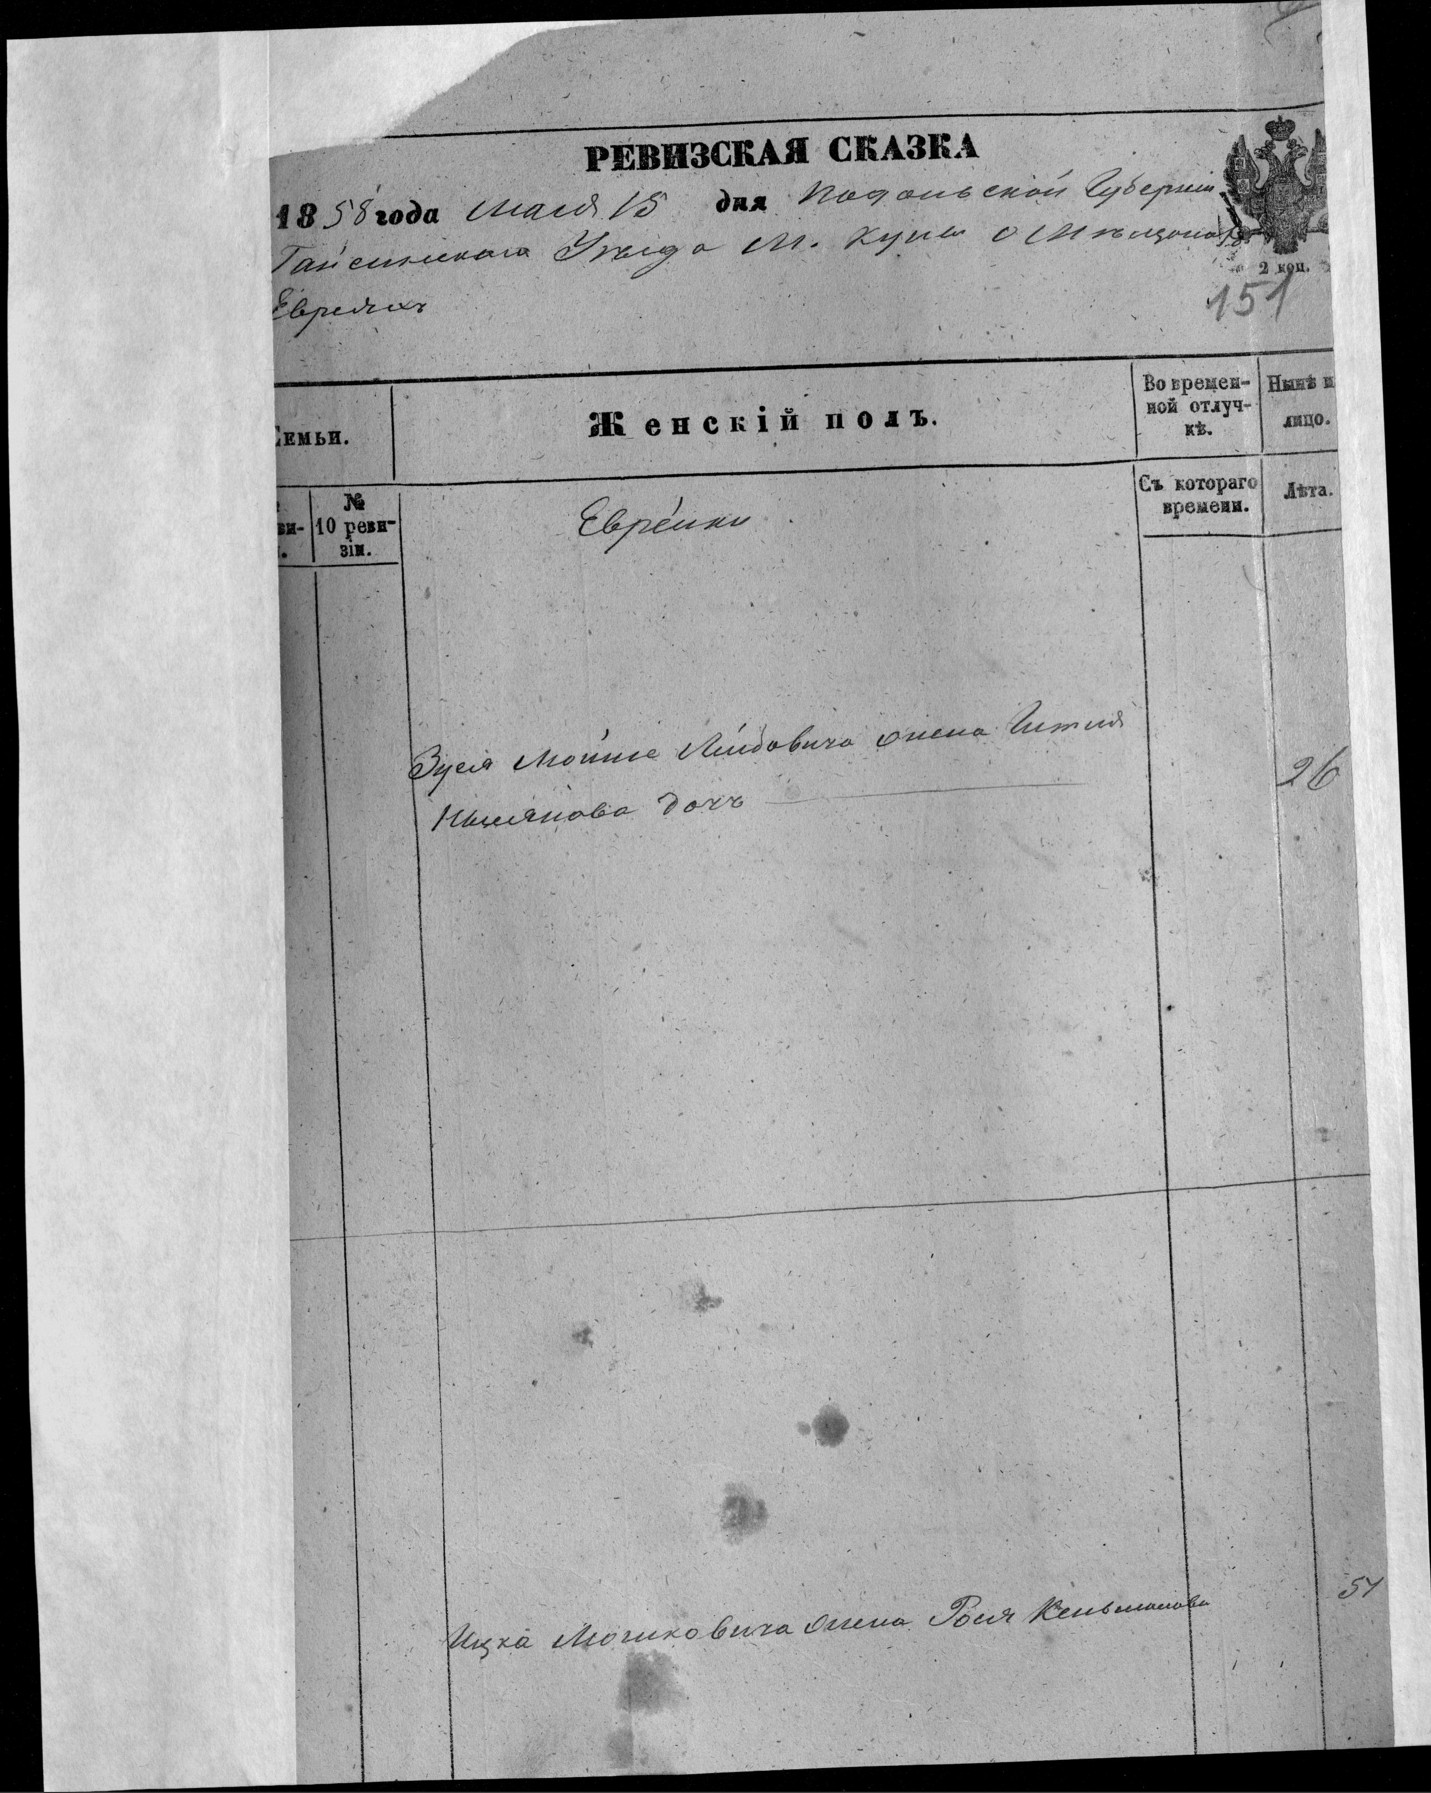 РЕВИЗСКАЯ СКАЗКА
1858 года мая 15 дня Подольской Губернии
Гайсинскаго Уезда М. Куны о Мещанахъ
Евреяхъ
2 коп.
151
Семьи.
Женскій полъ.
Во времен-
ной отлуч-
кѣ.
Нынѣ
лицо.
№
10 реви-
зіи.
ви-
Съ котораго
времени.
Лѣта.
Еврейки
Зуся Мойше Лейбовича жена
26
дочь
Ицка Мошковича жена Рося
51